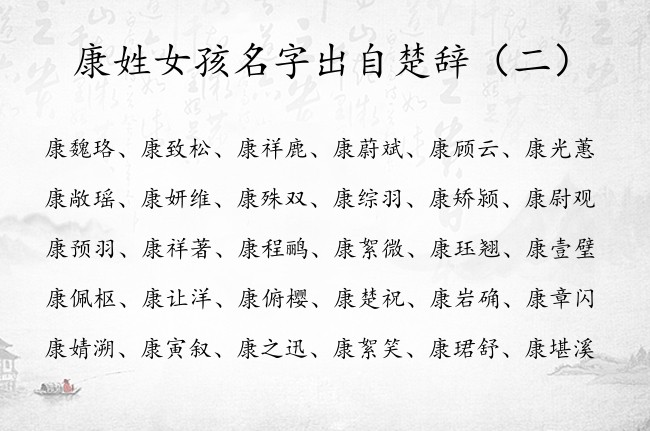 康姓女孩名字出自楚辞（二）
康魏珞、康致松、康祥鹿、康蔚斌、康顾云、康光蕙
康敞瑶、康妍维、康殊双、康综羽、康矫颍、康尉观
康预羽、康祥著、康程鹂、康絮微、康珏翘、康壹璧
康佩枢、康让洋、康俯樱、康楚祝、康岩确、康章闪
康婧溯、康寅叙、康之迅、康絮笑、康珺舒、康堪溪